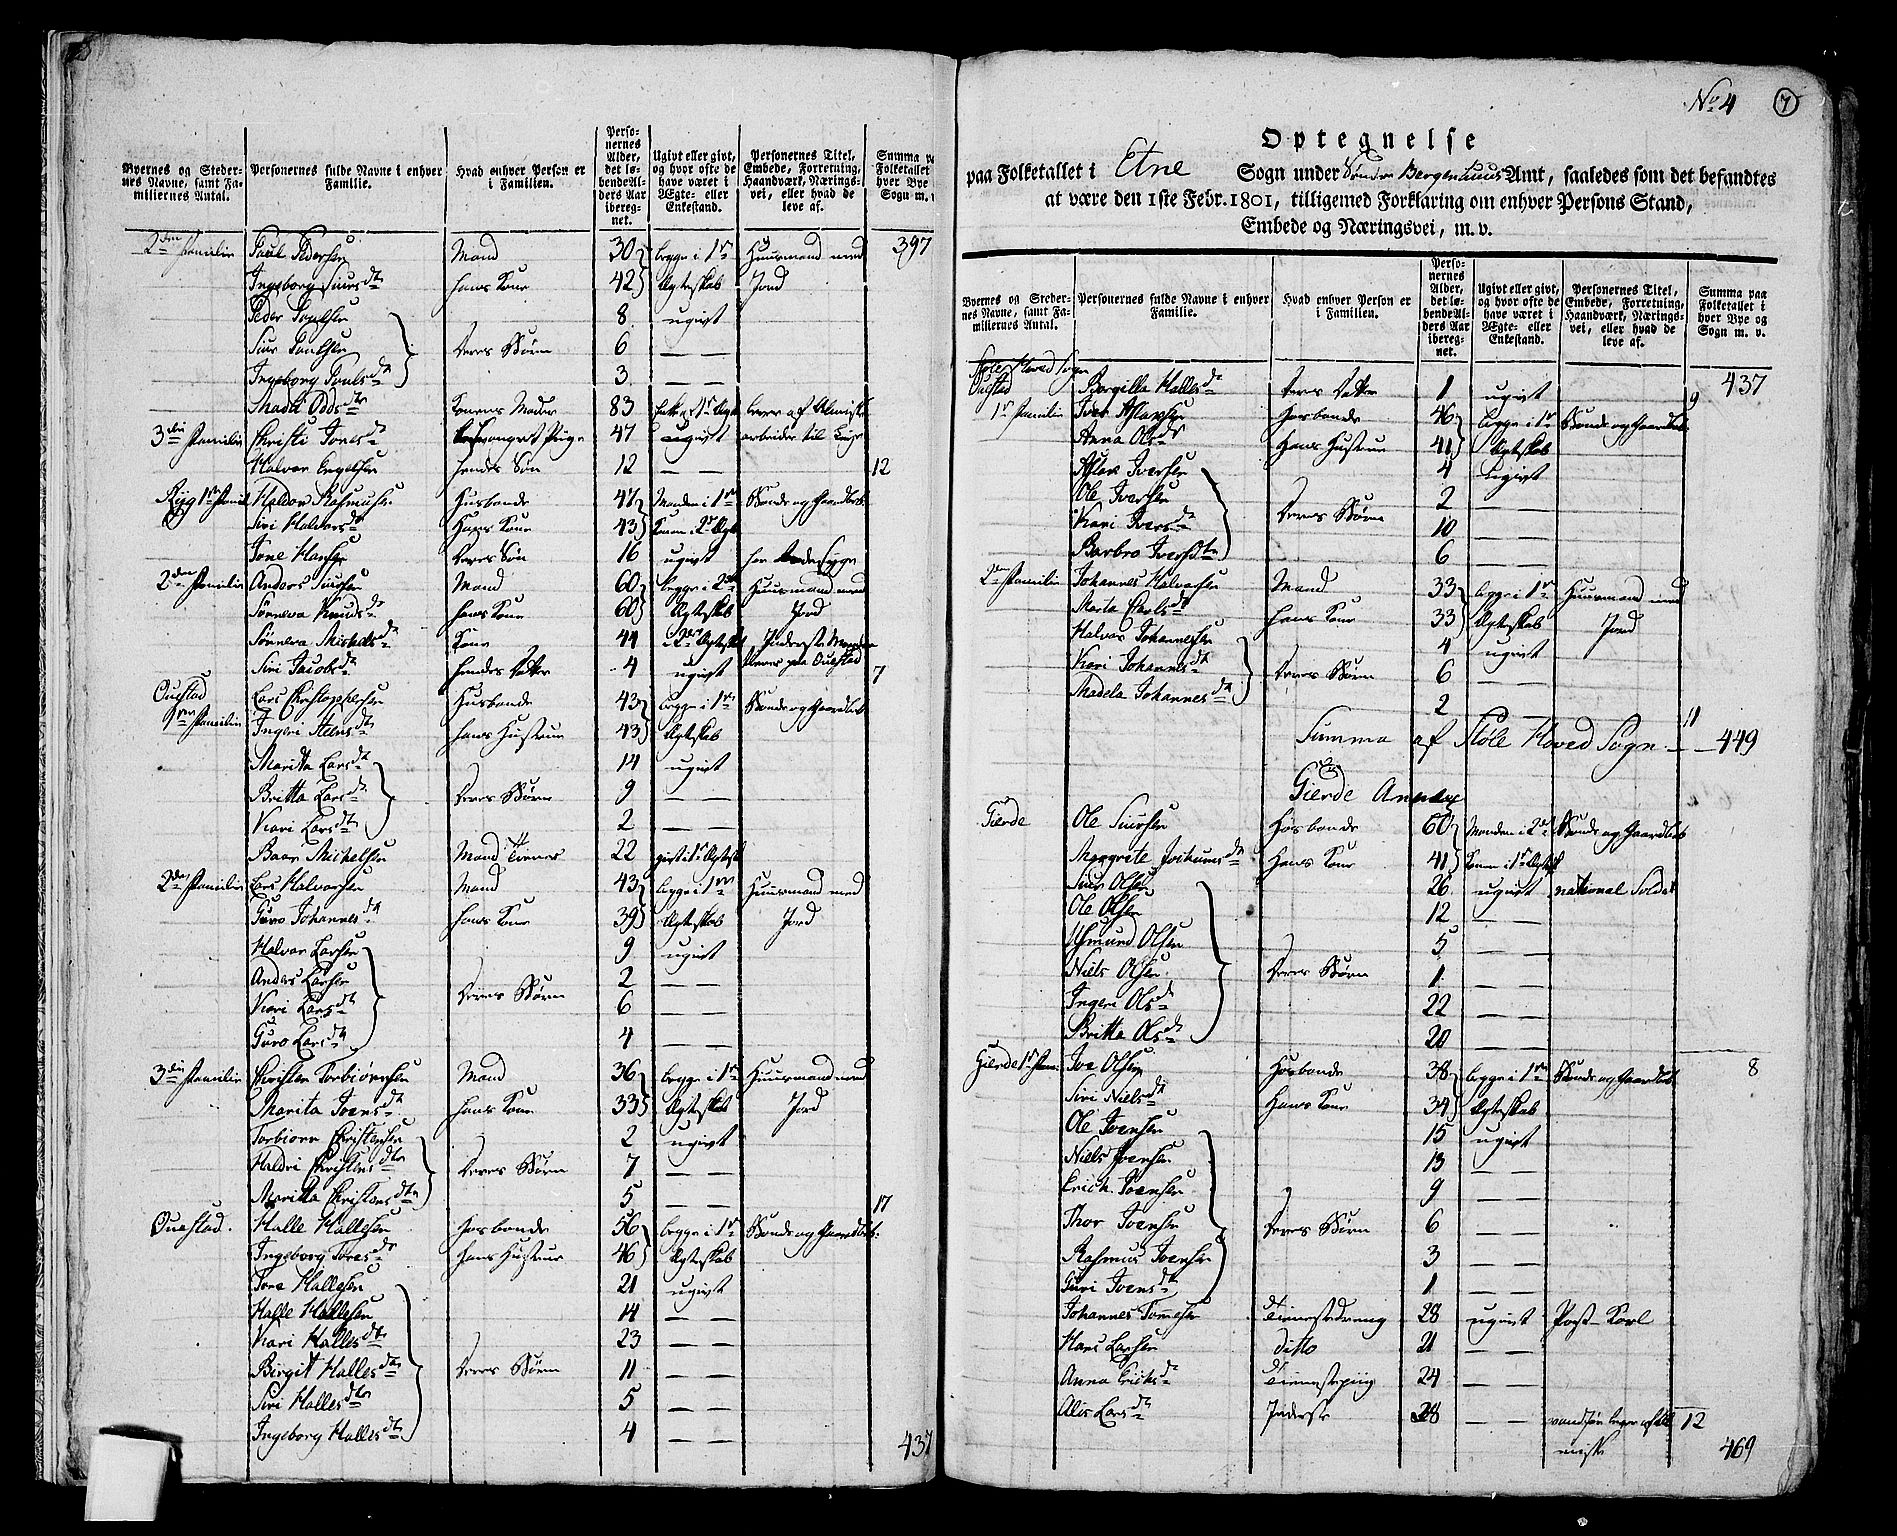 Byernes og Steder-
nes Navne, samt Fa-
miliernes Antal.
Personernes fulde Navne i enhver
Familie.
Hvad enhver Person er
i Familien.
Perso-
nernes
Alder,
det lø-
bende Al-
ders Aar
ibereg-
net.
Ugivt eller givt,
og hvor ofte de
have været i
Ægte- eller
Enkestand.
Personernes Titel,
Embede, Forretning,
Haandværk, Nærings-
vei, eller hvad de
leve af.
Summa pa
Folketallet
hver Bye
Sogn m. v.
2den Familie Paul Pedersen Mand 30 begge i 1ste Huusmand med 397
Ingeborg Siursdtr hans Kone 42 Ægteskab Jord
Peder Poulsen 8 ugivt
Siur Poulsen deres Børn 6 — —
Ingeborg Poulsdtr 3 — —
Madli Oddsdtr Konens Moder 83 lever af Almisse
3die Familie Christi Jonesdtr Pige 47 ugivt arbeider til
Halvor Engelsen hendes Søn 12 — — 12
Rygg 1ste Famil Haldor Rasmussen Husbonde 47 Manden i 1ste Bonde og Gaardbeb
Siri Halvorsdtr Hans Kone 43 Konen i 2det Ægt
Tone Hansen deres Søn 16 ugivt
2den Familie Anders Siursen Mand 60 begge i 2det Huusmand med
Sønneva Knudsdtr hans Kone 60 Ægteskab Jord
Sønneva Michelsdtr Kone 44 2det Ægteskab Inderste
Siri Jacobsdtr hendes Datter 4 ugivt paa Ouestad 7
Ouestad Lars Christophersen Husbonde 43 begge i 1ste Bonde og Gaardbeb
1ste Familie Ingeri Steensdtr hans Hustrue 43 Ægteskab
Maritta Larsdtr 14 ugivt
Britta Larsdtr deres Børn 9 — —
Kari Larsdtr 2 — —
Baar Michelsen Mand Tienes 22 givt i 1ste Ægtesk
2den Familie Lars Halvorsen Mand 43 begge i 1ste Huusmand med
Guro Johannesdtr hans Kone 39 Ægteskab Jord
Halvor Larsen 9 ugivt
Anders Larsen 2 — —
Kari Larsdtr deres Børn 6 — —
Guro Larsdtr 4 — —
3die Familie Christen Torbiørnsen Mand 36 begge i 1ste Huusmand med
Marita Iversdtr hans Kone 33 Ægteskab Jord
Torbiørn Christensen 2 ugivt
Haldri Christensdtr deres Børn 7 — —
Maritta Christensdtr 5 — — 17
Ouestad. Halle Hallesen Hosbonde 56 begge i 1ste Bonde og Gaardbeb:
Ingeborg Toresdtr hans Hustrue 46 Ægteskab
Tore Hallesen 21 ugivt
Halle Hallesen 14 — —
Kari Hallesdtr 23 — —
Birgit Hallesdtr deres Børn 11 — —
Siri Hallesdtr 5 — —
Ingeborg Hallesdtr 4 — — 437
No 4 7
Optegnelse
paa Folketallet i Etne Sogn under Søndre Bergenhuus Amt, saaledes som det befandtes
at være den 1ste Febr. 1801, tilligemed Forklaring om enhver Persons Stand,
Embede og Næringsvei, m. v.
Byernes og Steder-
nes Navne, samt Fa-
miliernes Antal.
Personernes fulde Navne i enhver
Familie.
Hvad enhver Person er
i Familien.
Perso-
nernes
Alder,
det lø-
bende Al-
ders Aar
ibereg-
net.
Ugivt eller givt,
og hvor ofte de
have været i
Ægte- eller
Enkestand.
Personernes Titel,
Embede, Forretning,
Haandværk, Nærings-
vei, eller hvad de
leve af.
Summa paa
Folketallet i
hver Bye og
Sogn m. v.
Støle Hoved Sogn
Ouestad Borgilla Hallesdtr deres Datter 1 ugivt 9 437
1ste Familie Iver Aslaksen Hosbonde 46 begge i 1ste Bonde og Gaardbeb
Anna Olsdtr Hans Hustrue 41 Ægteskab
Aslak Iversen 4 Ugivt
Ole Iversen 2 — —
Kari Iversdtr deres Børn 10 — —
Barbro Iversdtr 6 — —
2den Familie Johannes Halvorsen Mand 33 begge i 1ste Huusmand med
Marta Carlsdtr hans Kone 33 Ægteskab Jord
Halvor Johannessen 4 ugivt
Kari Johannesdtr deres Børn 6 —
Madela Johannesdtr 2 — — 11
Summa af Støle Hoved Sogn. — — 449
Gierde Annex
Gierde Ole Siursen Hosbonde 60 Manden i 2det Bonde og Gaardbeb
Margrete Jochumsdtr Hans Kone 41 Konen i 1ste Ægtesk
Siur Olsen 26 ugivt national Soldat
Ole Olsen 12 — —
Asmund Olsen 5 — —
Niels Olsen deres Børn 1 — —
Ingeri Olsdtr 22 — —
Britta Olsdtr 20 — —
Gierde 1ste Fam: Ive Olsen Hosbonde 38 begge i 1ste Bonde og Gaardbeb 8
Siri Nielsdtr Hans Kone 34 Ægteskab
Ole Ivensen 15 ugivt
Niels Ivensen 13 — —
Erich Ivensen 9 — —
Thor Ivensen deres Børn 6 — —
Rasmus Ivensen 3 — —
Guri Ivensdtr 1 — —
Johannes Tomesen Tienestedreng 28 ugivt Post-Karl
Hans Larsen ditto 21 — —
Anna Erichsdtr Tienestepiig 24 — —
Alis Larsdtr Inderste 28 — — vanfør lever af all 12
misse 469